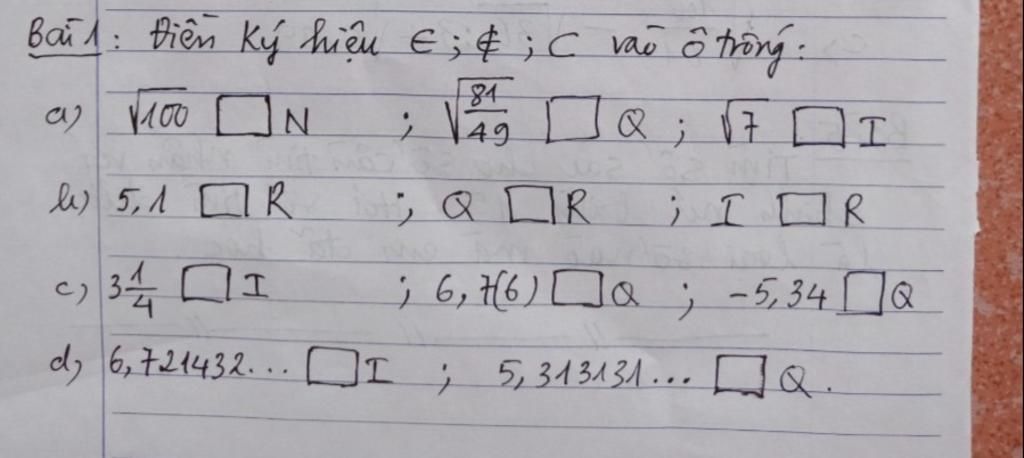 Bài 1: Điền ký hiệu ∈; ∉; ⊂ vào ô trống:
a) √100 □ N ; √(81/49) □ Q ; √7 □ I
b) 5,1 □ R ; Q □ R ; I □ R
c) 3 1/4 □ I ; 6,7(6) □ Q ; -5,34 □ Q
d) 6,721432... □ I ; 5,313131... □ Q.